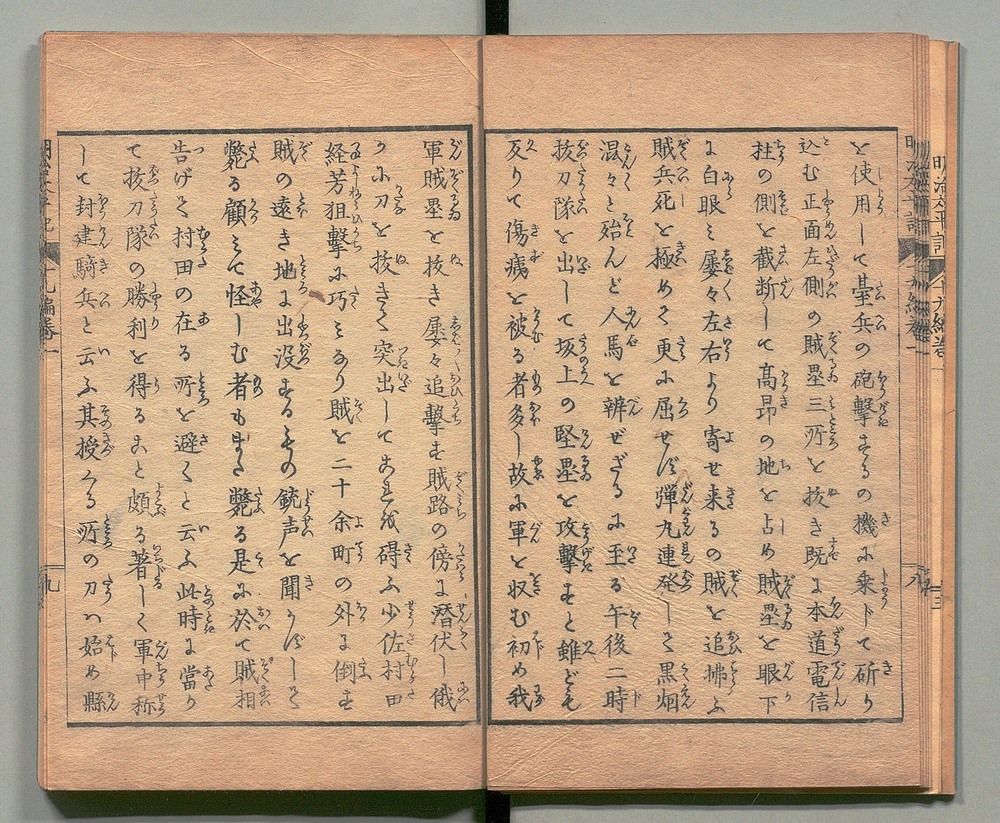 を使用して臺兵の砲撃するの機に乗じて斫り
込む正面左側の賊塁三所を抜き既に本道電信
柱の側を截断して高昂の地を占め賊塁を眼下
に白眼み屡々左右より寄せ来るの賊を追拂ふ
賊兵死を極めて更に屈せず彈丸連発して黒烟
混々と殆んど人馬を辨ぜざるに至る午後二時
抜刀隊を出して坂上の堅塁を攻撃すと雖ども
反りて傷痍を被る者多し故に軍を収む初め我
軍賊塁を抜き屡々追撃す賊路の傍に潜伏し俄
かに刀を抜きて突出してこれを碍ふ少佐村田
経芳狙撃に巧みなり賊を二十余町の外に倒す
賊の遠き地に出没するもの銃声を聞かずして
斃る顧みて怪しむ者もまた斃る是に於て賊相
告げて村田の在る所を避くと云ふ此時に當り
て抜刀隊の勝利を得ること頗る著しく軍中称
して封建騎兵と云ふ其授くる所の刀ハ始め縣
明治太平記
十九編巻一
八
九